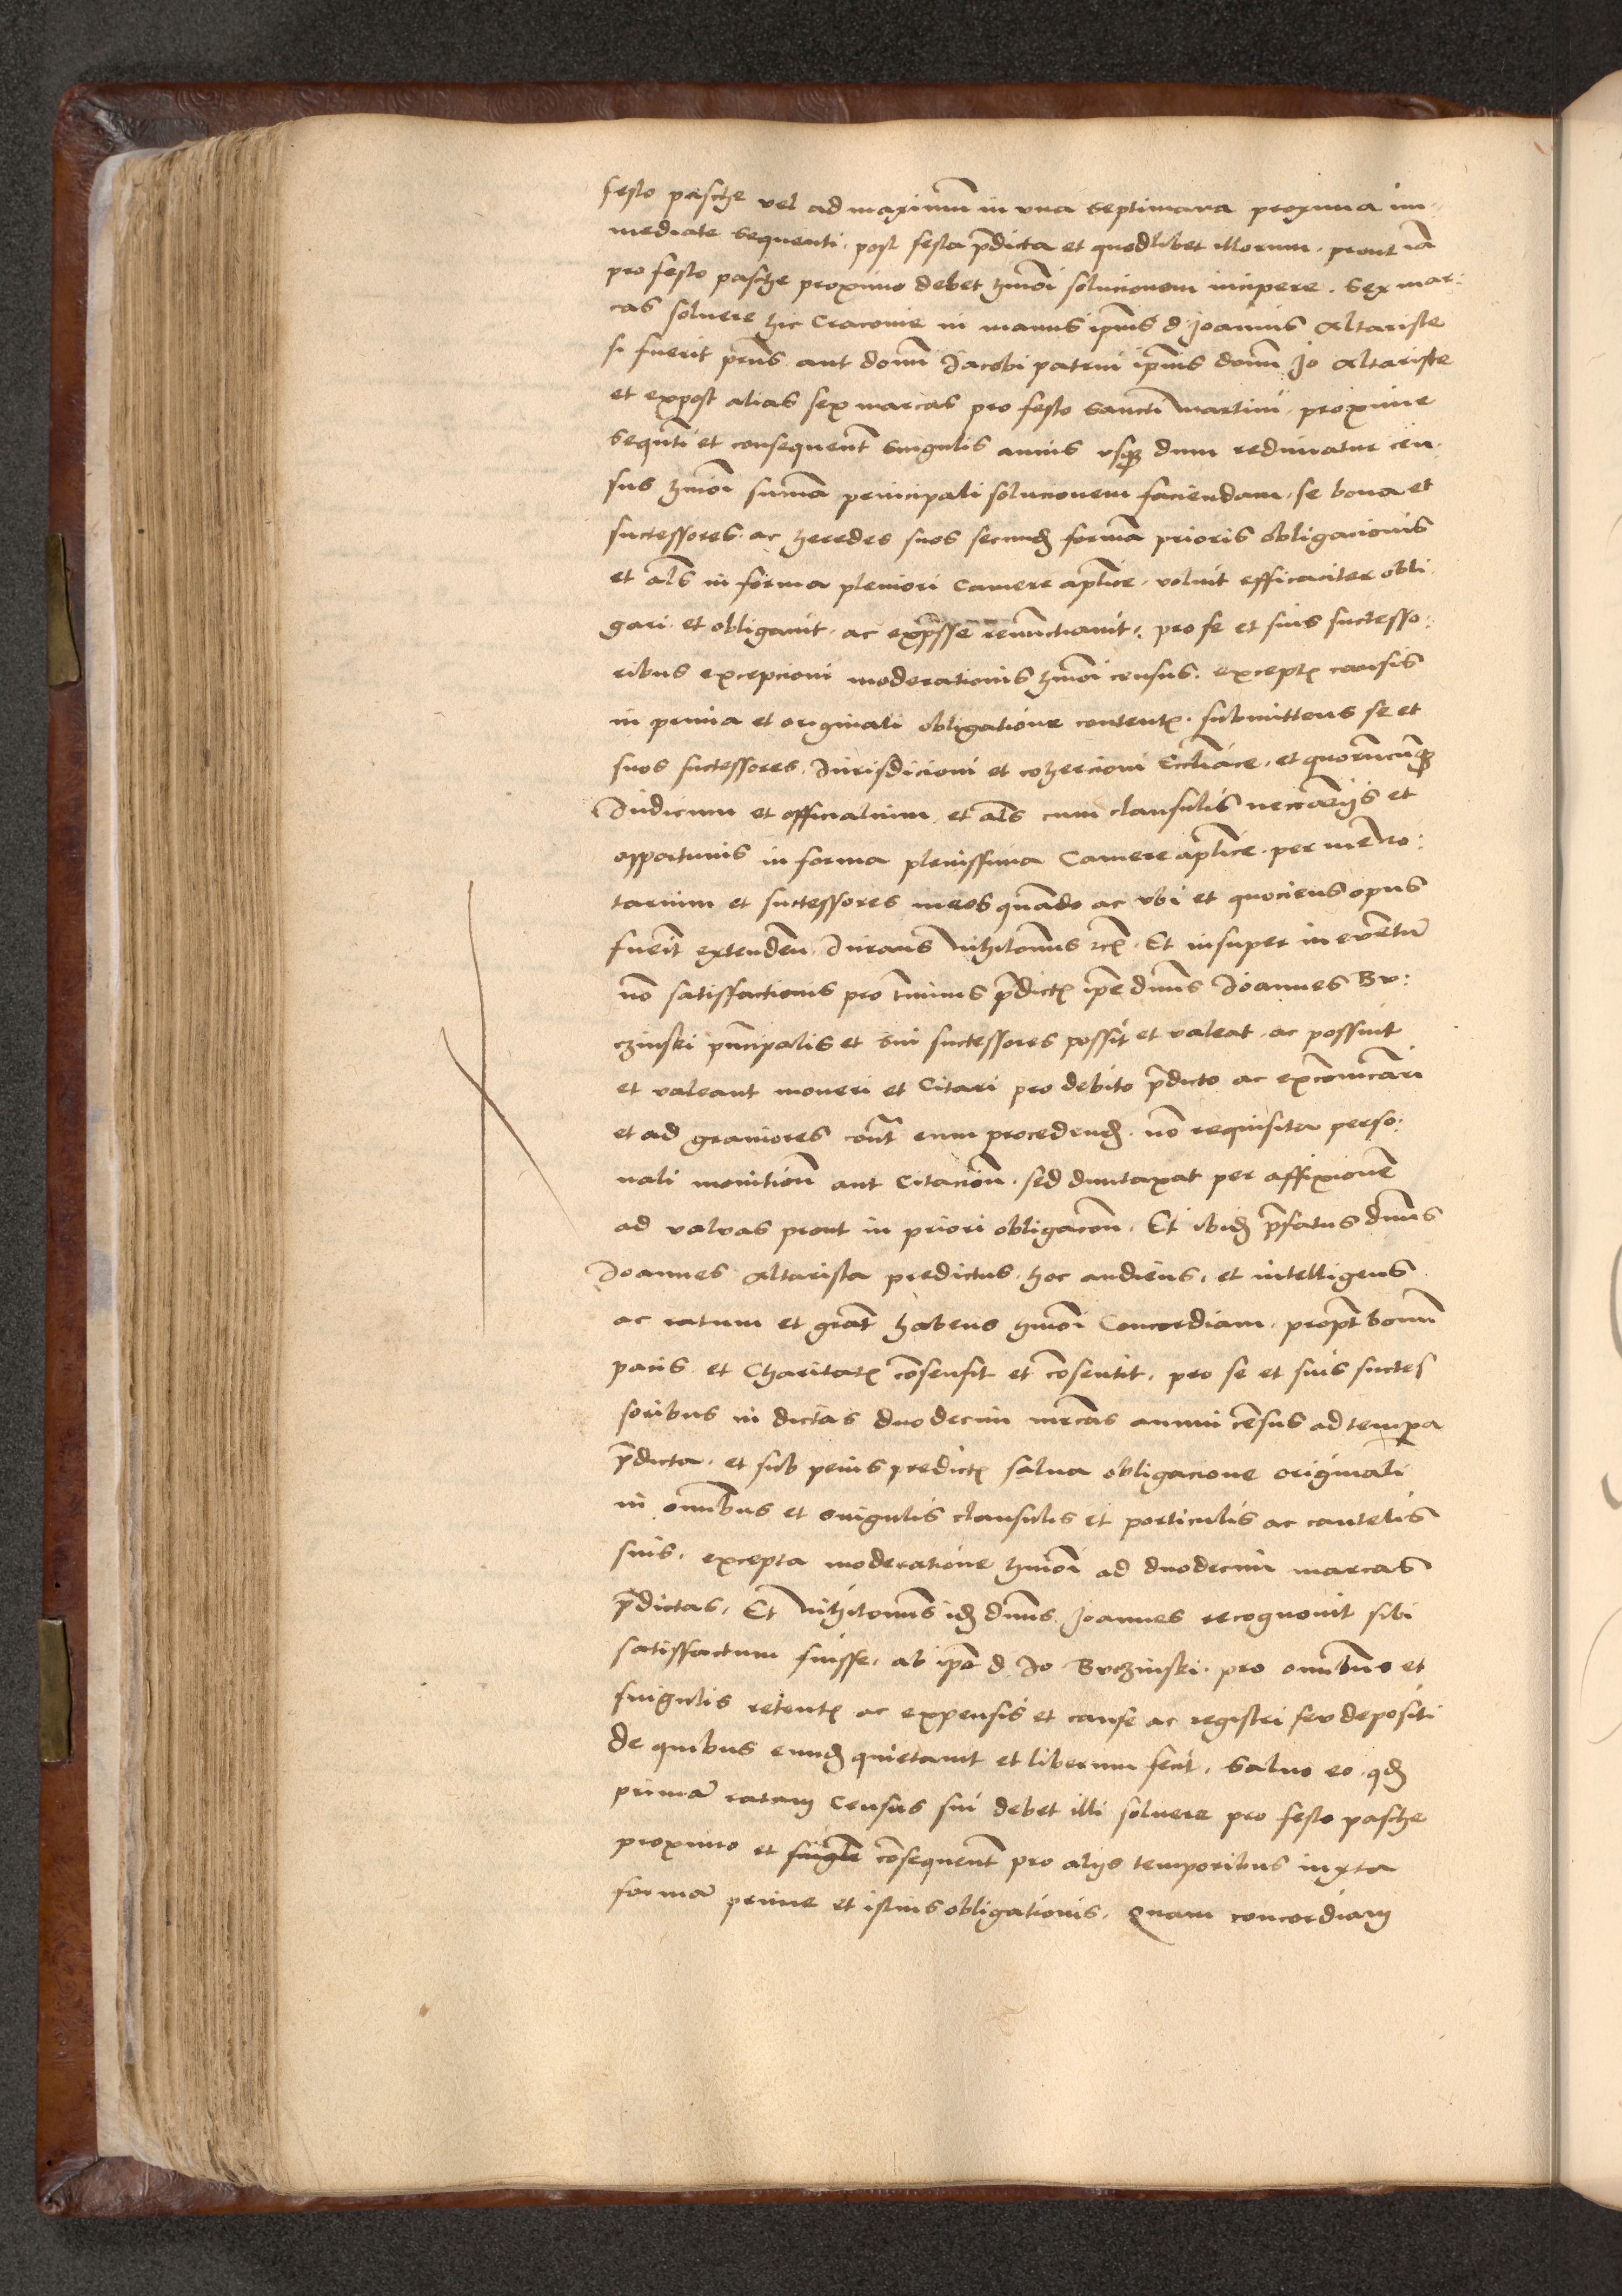 festo pasche vel ad maximum in vna septimana proxima im-
mediate sequenti, post festa p̄dicta et quodlibet illorum, prout iā
pro festo pasche proximo debet hmōi solucionem incipere. Sex mar-
cas soluere hic Cracouie in manus ip̄ius d Joannis Altariste
si fuerit p̄ns aut domī Jacobi patrui ip̄ius domī Jo Altariste
et expost alias sex marcas pro festo sancti Martini, proxime
sequn̄ti et consequent̄ singulis annis vsq̃ dum redimatur cen-
sus hmōi sum̄a principali solucionem faciendam, se bona et
successores ac heredes suos secund̄ formā prioris obligacionis
et als̄ in forma pleniori Camere ap̄lice, voluit efficaciter obli
gari et obligauit, ac exp̄sse renunctiauit, pro se et suis successo:
ribus excepcioni moderationis hmōi census. exceptꝭ causis
in prima et originali obligatione contentꝭ. submittens se et
suos successores. Jurisdicioni et cohercioni Eccl̄iasce, et quorūcūq̃
Judicum et officialium, et als̄ cum clausulis neccārijs et
opportunis in forma plenissima Camere ap̄lice, per mē No:
tarium et successores meos quādo ac vbi et quociens opus
fuerit extenden̄. Jurans Nihilomīus rcꝭ. Et insuper in euentū
nō satisfactionis pro t̄minis p̄dictꝭ ip̄e dn̄s Joannes Bu:
czinski p̄ncipalis et sui successores possit et valeat, ac possint
et valeant moneri et Citari pro debito p̄dicto ac excōmicari
et ad grauiores cont̄ eum procedend̄. nō requisita perso:
nali monition̄ aut Citacion̄. sed duntaxat per affixionē
ad valuas prout in priori obligacon̄. Et ibid̄ p̄fatus dn̄s
Joannes Altarista predictus, hoc audiens, et intelligens
ac ratum et grat̄ habens hmōi Concordiam, propt̄ bonū
pacis et Charitatꝭ cōsensit et cōsentit, pro se et suis succes
soribus in dictas duodecim mrcas annui cēsus ad tempa
p̄dicta, et sub penis predictꝭ salua obligacione originali
in omībus et singulis clausulis et particulis ac cautelis
suis, excepta moderatione hmōi ad duodecim marcas
p̄dictas, Et Nihilomīus id̄ dn̄s Joannes recognouit sibi
satisfactum fuisse, ab ip̄o d Jo Buczinski, pro omībus et
singulis retentꝭ ac expensis et cause ac registri seu depositi
de quibus eund̄ quietauit et liberum fecit, Saluo eo qd̄
primā ratam Census sui debet illi soluere pro festo pasche
proximo et single cōsequent̄ pro alijs temporibus iuxta
formā prime et istius obligationis, Quam concordiam